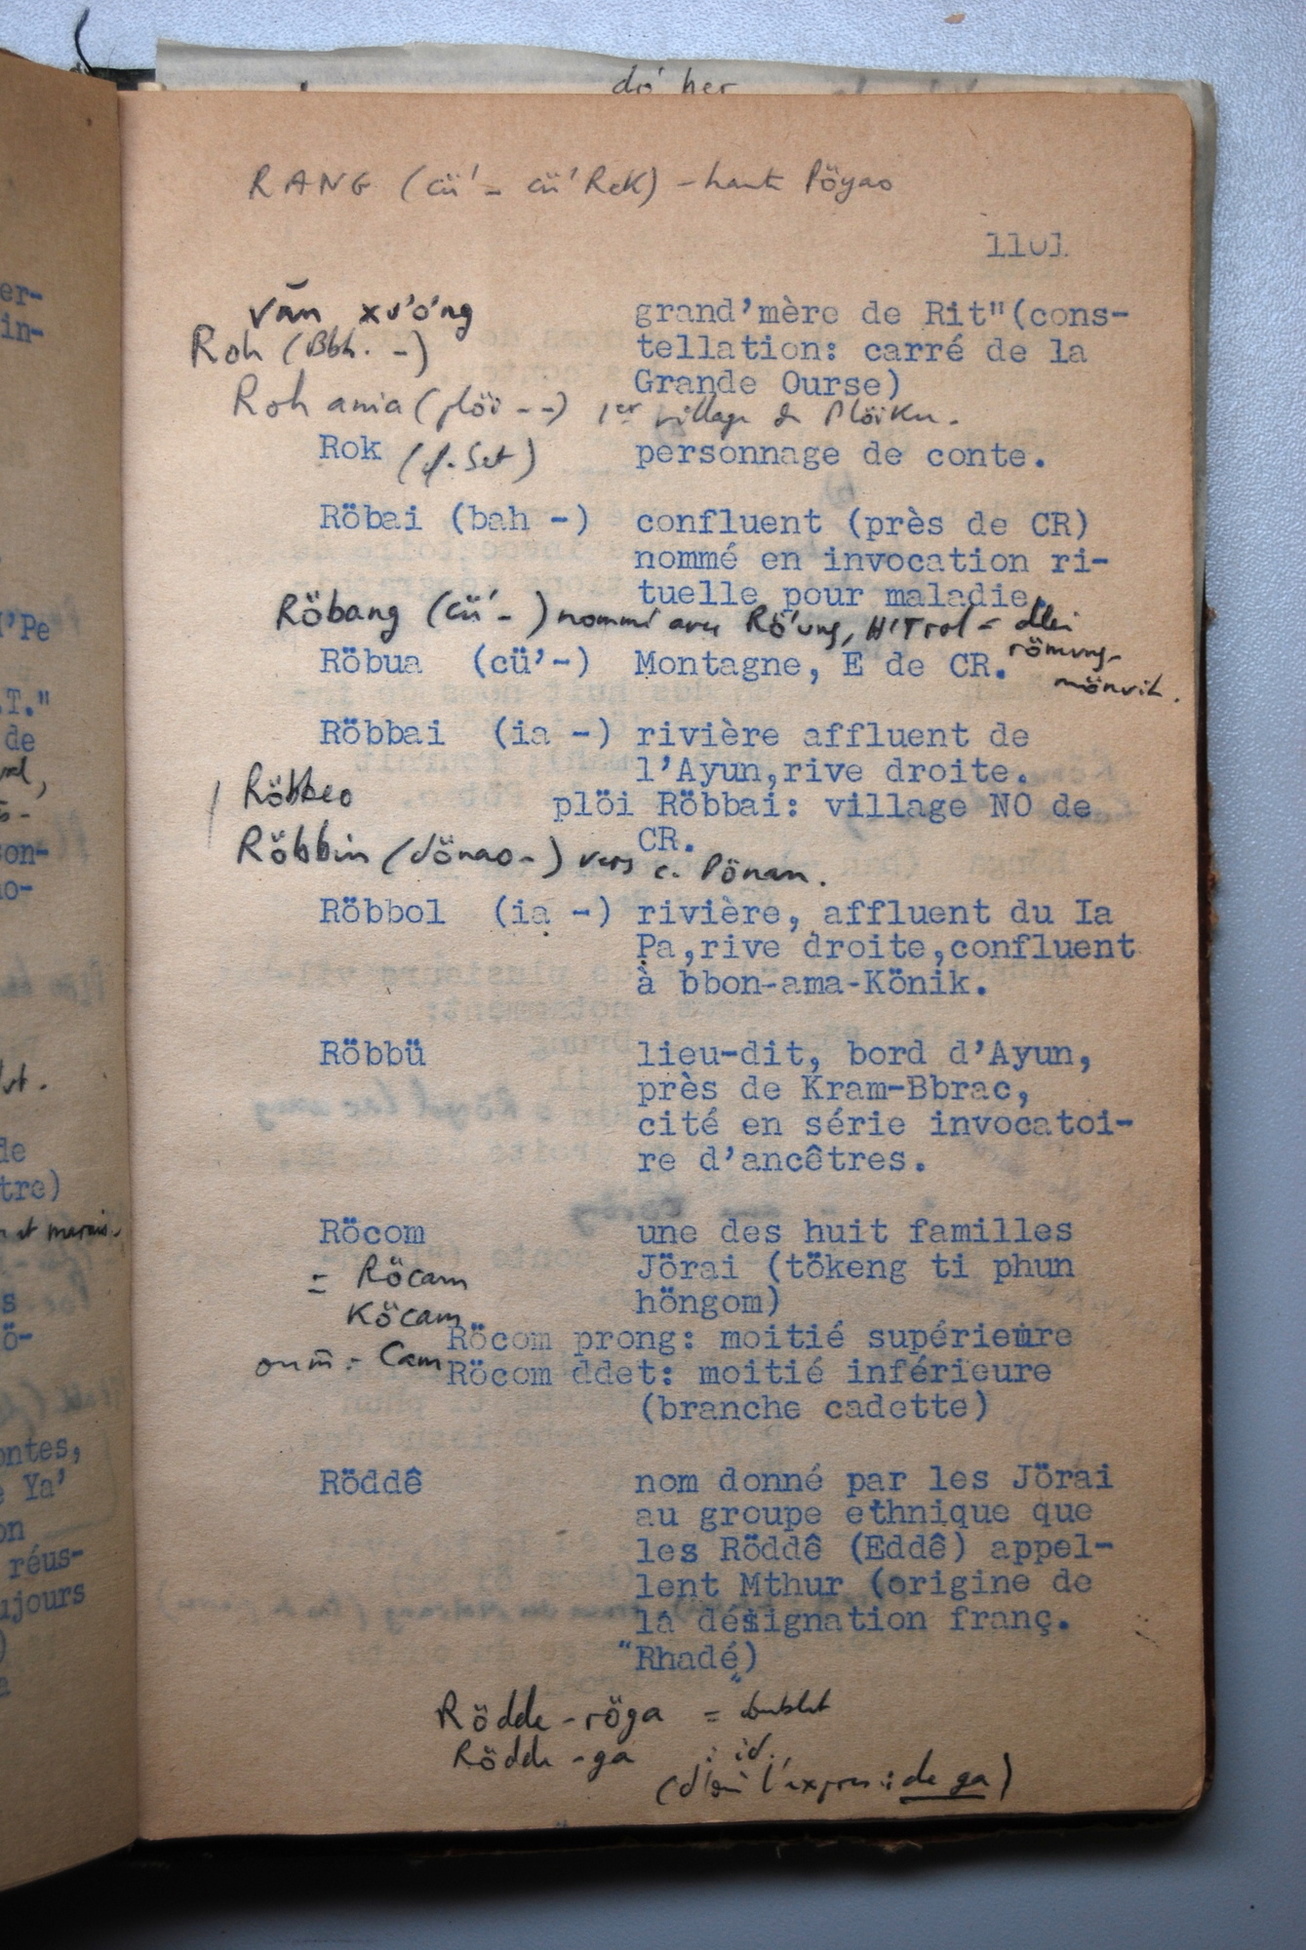 dö' her
RANG (cü' - cü' Rek) - haut Pöyao
1101
văn xương
grand'mère de Rit"(cons-
Roh (Bbh. -)
tellation: carré de la
Grande Ourse)
Roh ama (plöi - -) 1er village de Plöiku.
Rok (cf. Set) personnage de conte.
Röbai (bah -) confluent (près de CR)
nommé en invocation ri-
tuelle pour maladie.
Röbang (cü' -) nommé avec Rö'ung, H'Trol = dlei
römung-
Röbua (cü'-) Montagne, E de CR.
mönvih.
Röbbai (ia -) rivière affluent de
l'Ayun,rive droite.
Röbbeo
plöi Röbbai: village NO de
CR.
Röbbin (dönao-) vers c. Pönan.
Röbbol (ia -) rivière, affluent du Ia
Pa,rive droite,confluent
à bbon-ama-Könik.
Röbbü lieu-dit, bord d'Ayun,
près de Kram-Bbrac,
cité en série invocatoi-
re d'ancêtres.
Röcom une des huit familles
Jörai (tökeng ti phun
höngom)
= Röcam
Köcam
Röcom prong: moitié supérieure
= Cam
Röcom ddet: moitié inférieure
(branche cadette)
Röddê nom donné par les Jörai
au groupe ethnique que
les Röddê (Eddê) appel-
lent Mthur (origine de
la désignation franç.
"Rhadé")
Rödde - röga = doublet
Rödde - ga : id.
(d'où l'expres.: de ga)
er-
in-
'Pe
.T."
de
son-
no-
de
tre)
et marais.
s
ö-
ontes,
e Ya'
on
réus-
ujours
)
a